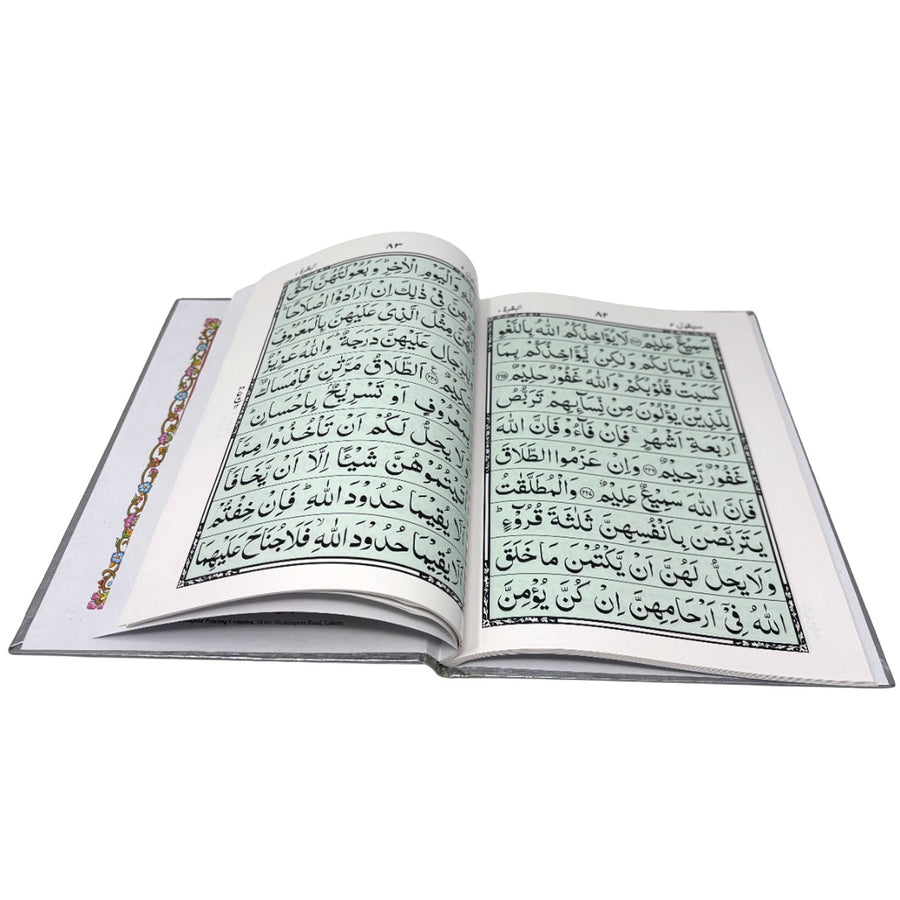 سيقول ٢ ٨٢ البقرة ٢
سَمِيْعٌ عَلِيْمٌ ﴿٢٢٤﴾ لَا يُؤَاخِذُكُمُ اللّٰهُ بِاللَّغْوِ
فِيْٓ اَيْمَانِكُمْ وَلٰكِنْ يُّؤَاخِذُكُمْ بِمَا
كَسَبَتْ قُلُوْبُكُمْ وَاللّٰهُ غَفُوْرٌ حَلِيْمٌ ﴿٢٢٥﴾
لِلَّذِيْنَ يُؤْلُوْنَ مِنْ نِّسَآئِهِمْ تَرَبُّصُ
اَرْبَعَةِ اَشْهُرٍ ۚ فَاِنْ فَآءُوْ فَاِنَّ اللّٰهَ
غَفُوْرٌ رَّحِيْمٌ ﴿٢٢٦﴾ وَاِنْ عَزَمُوا الطَّلَاقَ
فَاِنَّ اللّٰهَ سَمِيْعٌ عَلِيْمٌ ﴿٢٢٧﴾ وَالْمُطَلَّقٰتُ
يَتَرَبَّصْنَ بِاَنْفُسِهِنَّ ثَلٰثَةَ قُرُوْٓءٍ ؕ
وَلَا يَحِلُّ لَهُنَّ اَنْ يَّكْتُمْنَ مَا خَلَقَ
اللّٰهُ فِيْٓ اَرْحَامِهِنَّ اِنْ كُنَّ يُؤْمِنَّ
٨٣ البقرة ٢
وَالْيَوْمِ الْاٰخِرِ ؕ وَبُعُوْلَتُهُنَّ اَحَقُّ
فِيْ ذٰلِكَ اِنْ اَرَادُوْٓا اِصْلَاحًا ؕ
مِثْلُ الَّذِيْ عَلَيْهِنَّ بِالْمَعْرُوْفِ
عَلَيْهِنَّ دَرَجَةٌ ؕ وَاللّٰهُ عَزِيْزٌ
﴿٢٢٨﴾ اَلطَّلَاقُ مَرَّتٰنِ ۪ فَاِمْسَاكٌۢ
اَوْ تَسْرِيْحٌۢ بِاِحْسَانٍ ؕ
وَلَا يَحِلُّ لَكُمْ اَنْ تَاْخُذُوْا مِمَّآ
اٰتَيْتُمُوْهُنَّ شَيْئًا اِلَّآ اَنْ يَّخَافَآ
اَلَّا يُقِيْمَا حُدُوْدَ اللّٰهِ ؕ فَاِنْ خِفْتُمْ
اَلَّا يُقِيْمَا حُدُوْدَ اللّٰهِ ۙ فَلَا جُنَاحَ عَلَيْهِمَا
Printing Complex, 14 Km Sheikhupura Road, Lahore.